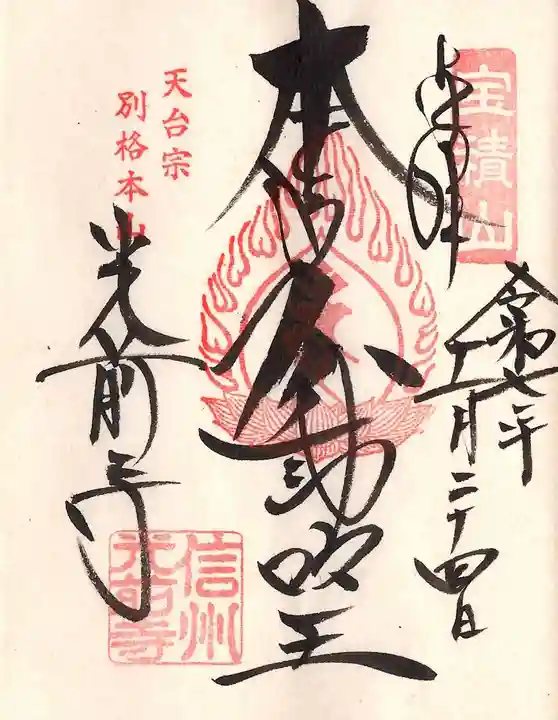 宝積山
奉拝
令和七年
十一月二十四日
本尊不動明王
天台宗
別格本山
光前寺
信州
光前寺